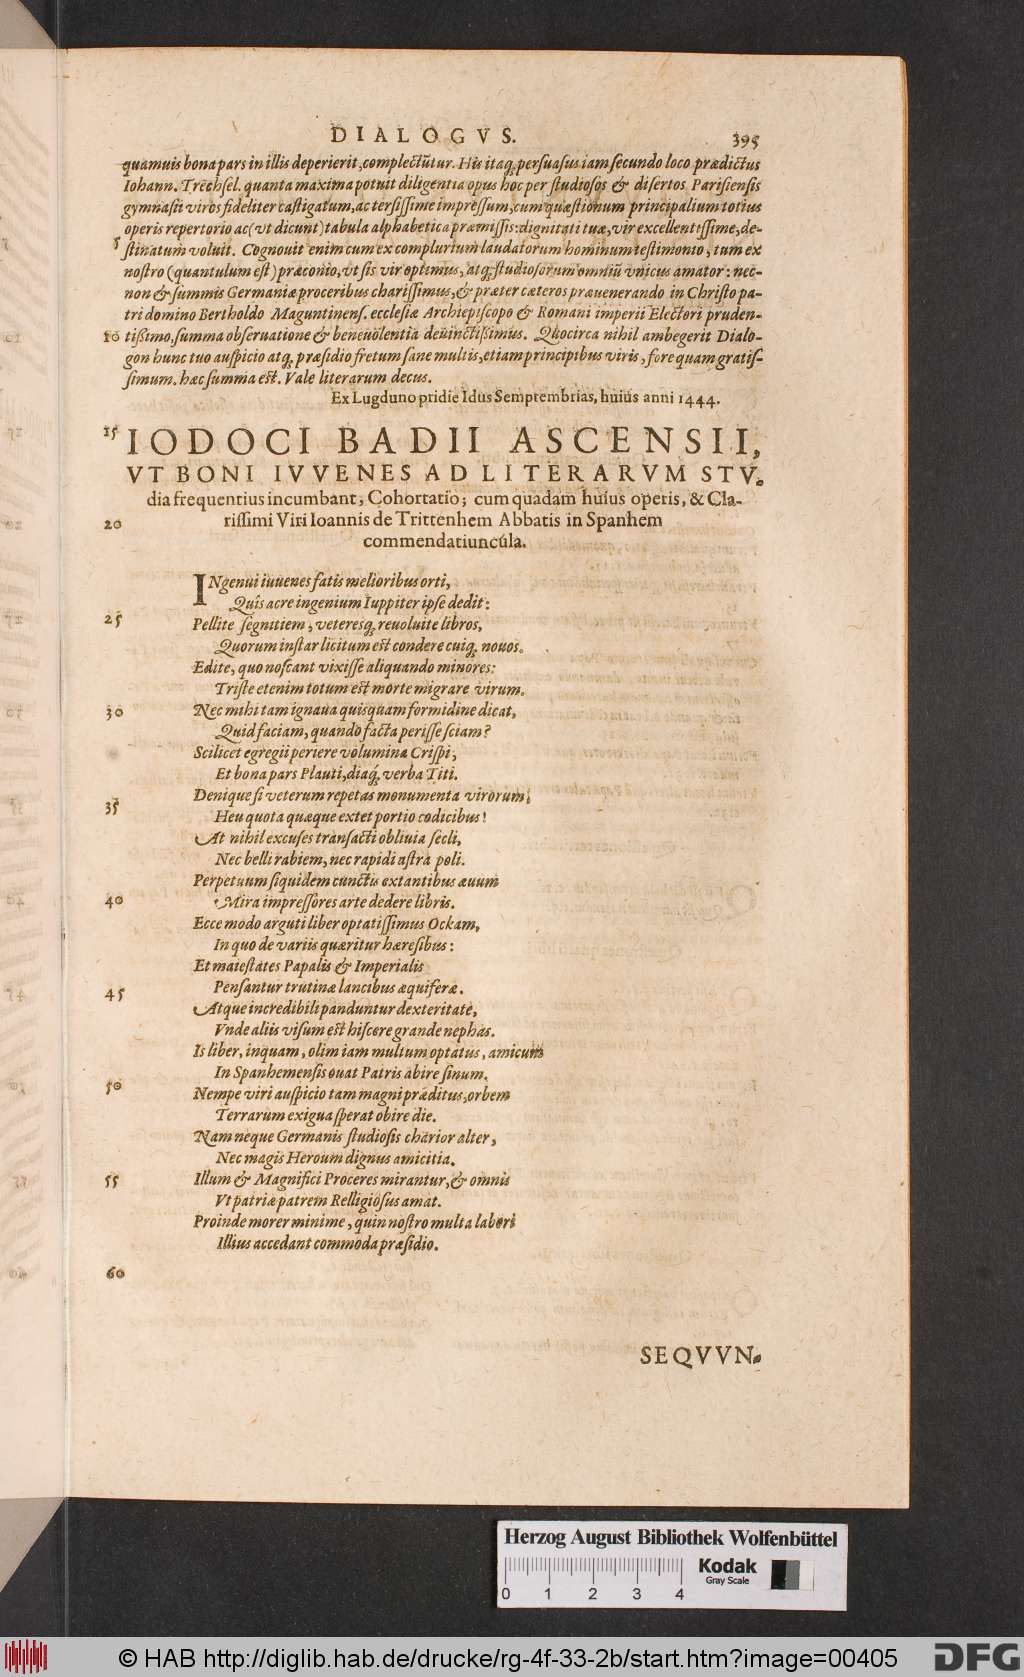 DIALOGVS. 395
quamuis bona pars in illis deperierit, complectūtur. His itaq; persuasus iam secundo loco prædictus
Iohann. Trechsel. quanta maxima potuit diligentia opus hoc per studiosos & disertos Parisiensis
gymnasii viros fideliter castigatum, ac tersissime impressum, cum quæstionum principalium totius
operis repertorio ac (vt dicunt) tabula alphabetica præmissis: dignitati tuæ, vir excellentissime, de-
5 stinatum voluit. Cognouit enim cum ex complurium laudatorum hominum testimonio, tum ex
nostro (quantulum est) præconio, vt sis vir optimus, atq; studiosorum omniū vnicus amator: nec-
non & summis Germaniæ proceribus charissimus, & præter cæteros præuenerando in Christo pa-
tri domino Bertholdo Maguntinens. ecclesiæ Archiepiscopo & Romani imperii Electori pruden-
10 tißimo, summa obseruatione & beneuolentia deuinctißimus. Quocirca nihil ambegerit Dialo-
gon hunc tuo auspicio atq; præsidio fretum sane multis, etiam principibus viris, fore quam gratis-
simum. hæc summa est. Vale literarum decus.
Ex Lugduno pridie Idus Semptembrias, huius anni 1444.
15 IODOCI BADII ASCENSII,
VT BONI IVVENES AD LITERARVM STV-
dia frequentius incumbant, Cohortatio; cum quadam huius operis, & Cla-
20 rissimi Viri Ioannis de Trittenhem Abbatis in Spanhem
commendatiuncula.
INgenui iuuenes fatis melioribus orti,
Quîs acre ingenium Iuppiter ipse dedit:
25 Pellite segnitiem, veteresq; reuoluite libros,
Quorum instar licitum est condere cuiq; nouos.
Edite, quo noscant vixisse aliquando minores:
Triste etenim totum est morte migrare virum.
30 Nec mihi tam ignaua quisquam formidine dicat,
Quid faciam, quando facta perisse sciam?
Scilicet egregii periere volumina Crispi,
Et bona pars Plauti, diaq; verba Titi.
Denique si veterum repetas monumenta virorum,
35 Heu quota quæque extet portio codicibus!
At nihil excuses transacti obliuia secli,
Nec belli rabiem, nec rapidi astra poli.
Perpetuum siquidem cunctis extantibus æuum
40 Mira impressores arte dedere libris.
Ecce modo arguti liber optatissimus Ockam,
In quo de variis quæritur hæresibus:
Et maiestates Papalis & Imperialis
45 Pensantur trutinæ lancibus æquiferæ.
Atque incredibili panduntur dexteritate,
Vnde aliis visum est hiscere grande nephas.
Is liber, inquam, olim iam multum optatus, amicum
In Spanhemensis ouat Patris abire sinum.
50 Nempe viri auspicio tam magni præditus, orbem
Terrarum exigua sperat obire die.
Nam neque Germanis studiosis charior alter,
Nec magis Heroum dignus amicitia.
55 Illum & Magnifici Proceres mirantur, & omnis
Vt patriæ patrem Relligiosus amat.
Proinde morer minime, quin nostro multa labori
Illius accedant commoda præsidio.
60
SEQVVN-
Herzog August Bibliothek Wolfenbüttel
Kodak
Gray Scale
0 1 2 3 4
© HAB http://diglib.hab.de/drucke/rg-4f-33-2b/start.htm?image=00405
DFG